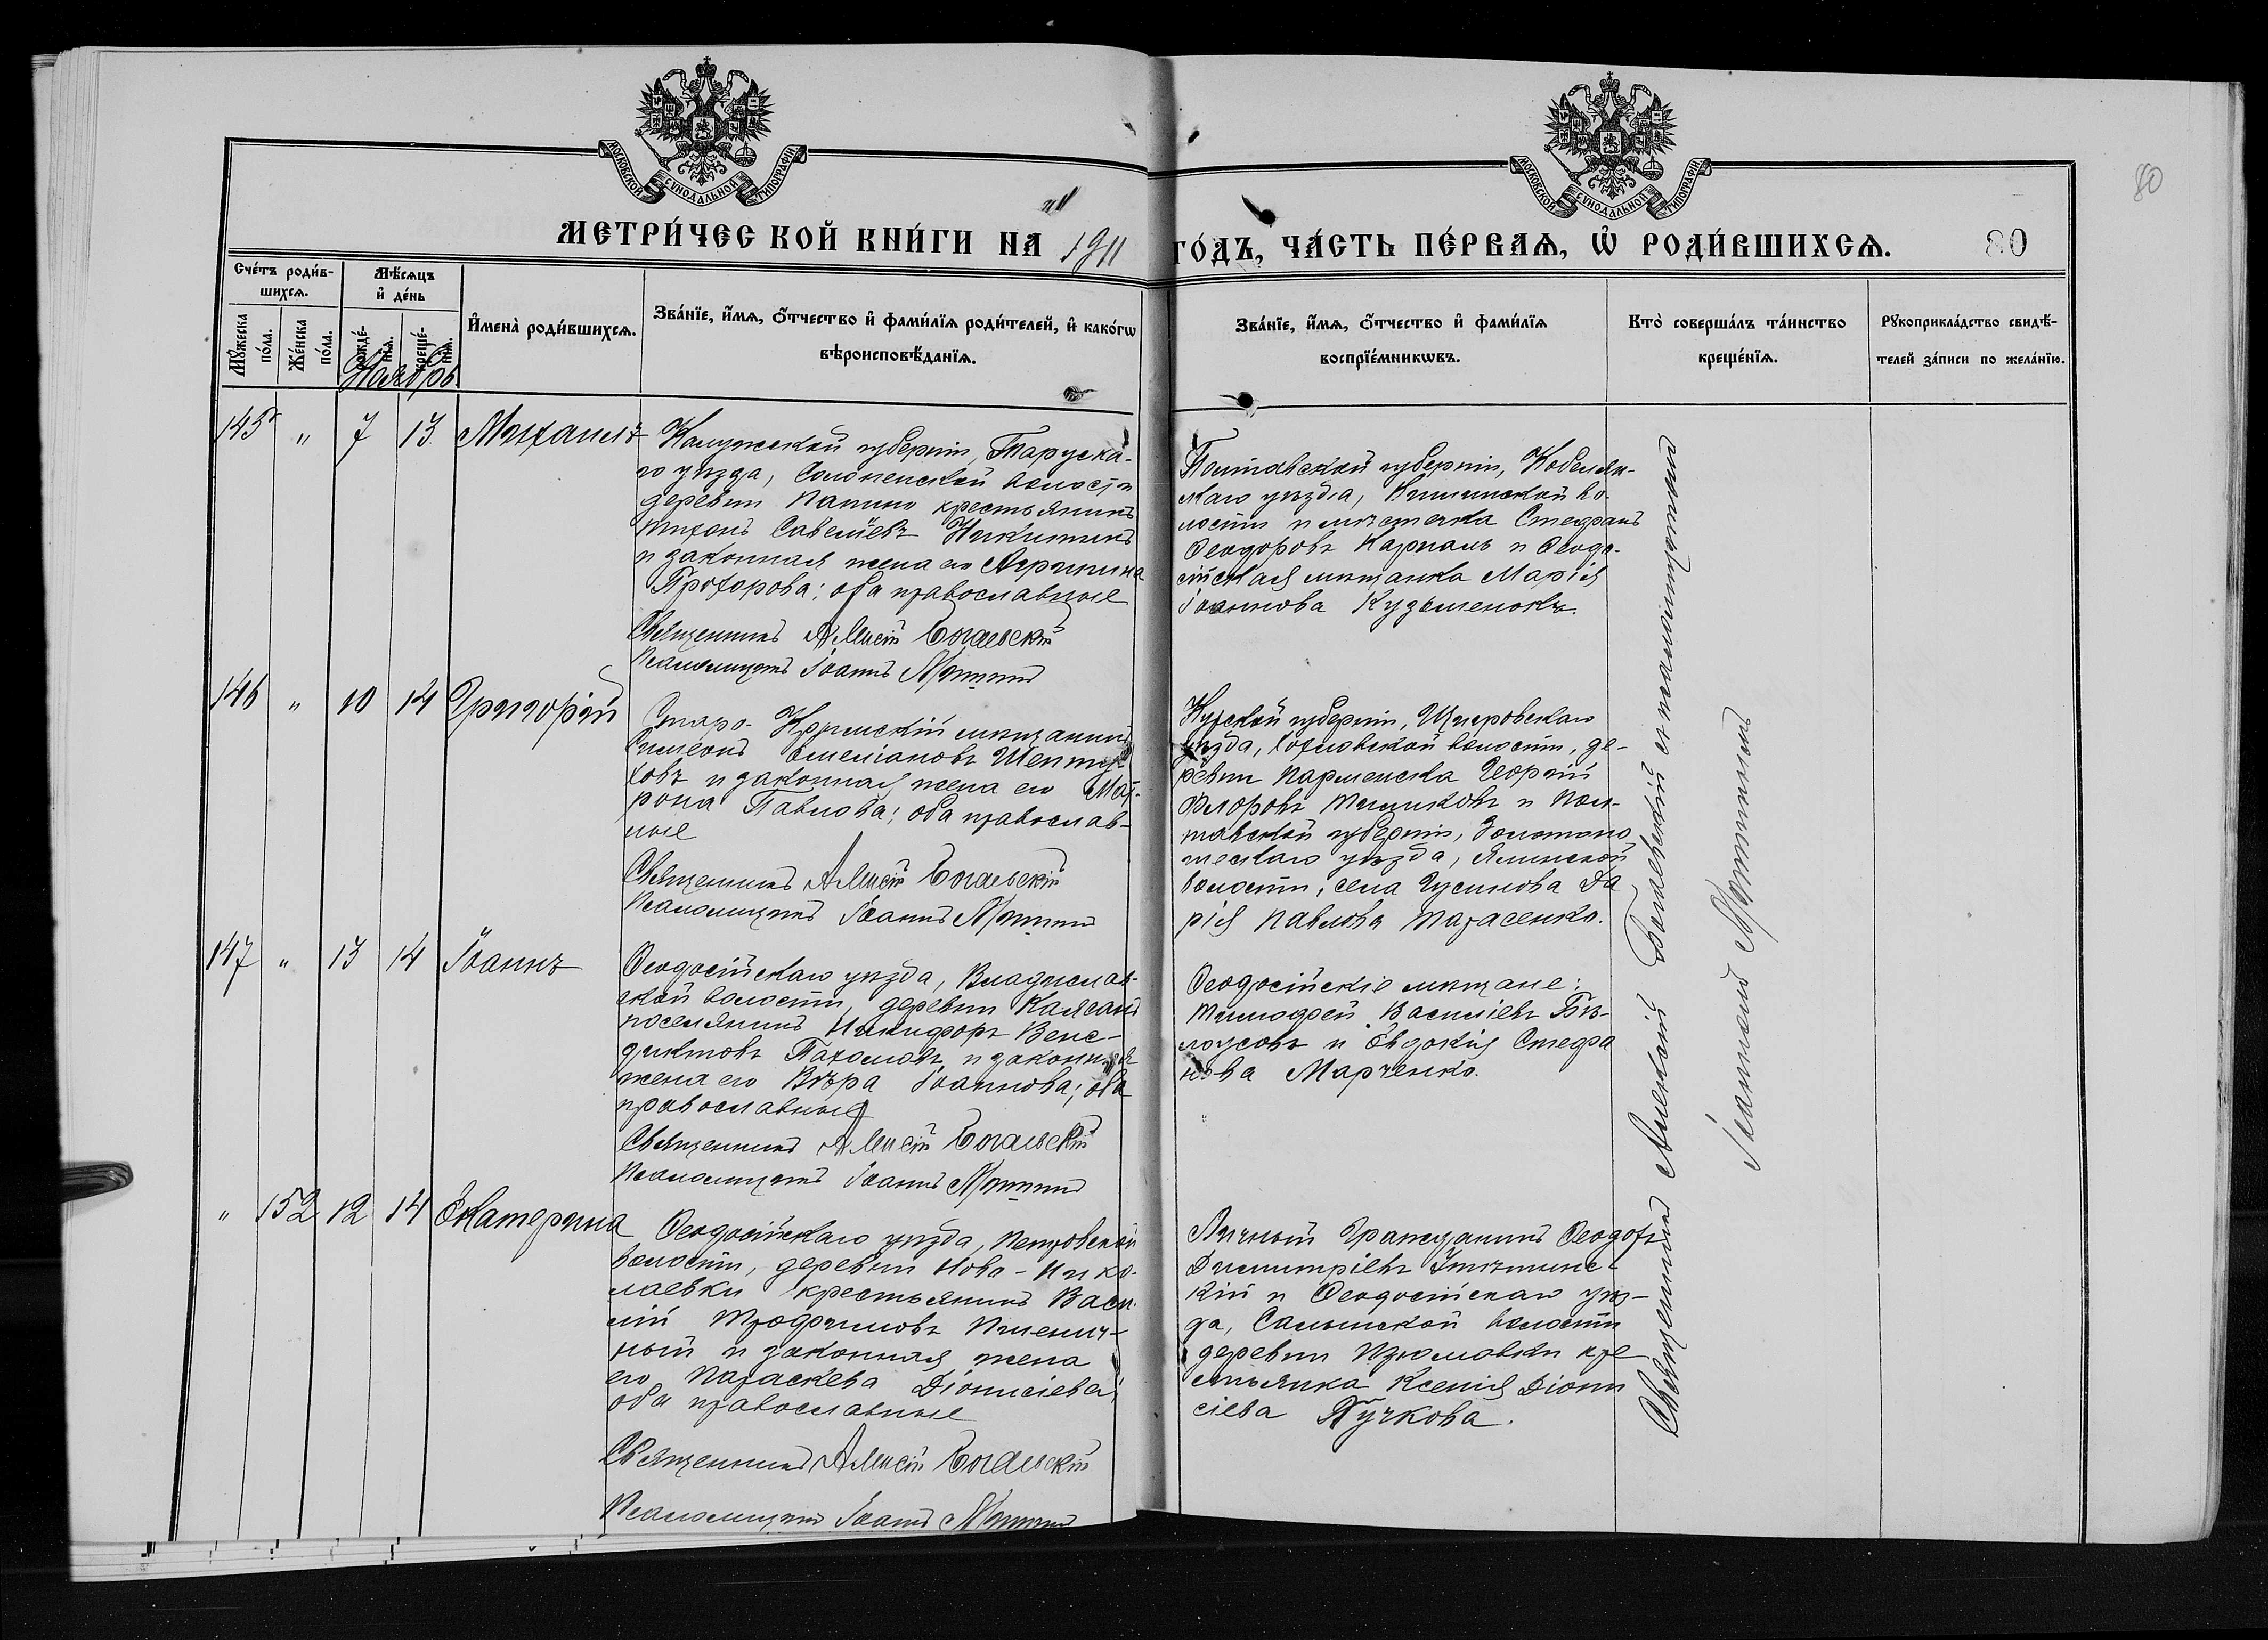 МОСКОВСКОЙ СѴНОДАЛЬНОЙ ТИПОГРАФІИ
МОСКОВСКОЙ СѴНОДАЛЬНОЙ ТИПОГРАФІИ
80
МЕТРИ́ЧЕСКОЙ КНИ́ГИ НА 1911 ГО́ДЪ, ЧА́СТЬ ПЕ́РВАѦ, Ѡ҆ РОДИ́ВШИХСѦ.
80
Сче́тъ роди́в-
шихсѧ.
Мѣ́сѧцъ
и҆ де́нь
Мꙋ́жеска
по́ла.
Же́нска
по́ла.
рожде́-
нїѧ.
креще́-
нїѧ.
Ноябрь
И҆мена̀ роди́вшихсѧ.
Зва́нїе, и҆́мѧ, ѻ҆́тчество и҆ фами́лїѧ роди́телей, и҆ како́гѡ
вѣроисповѣ́данїѧ.
Зва́нїе, и҆́мѧ, ѻ҆́тчество и҆ фами́лїѧ
воспрїе́мникѡвъ.
Кто̀ соверша́лъ та́инство
креще́нїѧ.
Рꙋкоприкла́дство свидѣ́-
телей за́писи по жела́нїю.
145 " 7 13. Михаилъ
Калужской губерніи, Таруска-
го уѣзда, Солопенской волости
деревни Папино крестьянинъ
Тихонъ Савельевъ Никитинъ
и законная жена его Агрипина
Прохорова; оба православные
Священникъ Алексій Богаевскій
Псаломщикъ Іоаннъ
Полтавской губерніи, Кобеляк-
скаго уѣзда, Кишинской во-
лости и мѣстечка Стефанъ
Феодоровъ Карналь и Феодо-
сійская мѣщанка Марія
Іоаннова Кузьменокъ.
146 " 10 14 Григорій
Старо-Крымскій мѣщанинъ
Симеонъ Емеліановъ Шепту-
ховъ и законная жена его Мат-
рона Павлова; оба православ-
ные
Священникъ Алексій Богаевскій
Псаломщикъ Іоаннъ
Курской губерніи, Щигровскаго
уѣзда, Хохловской волости, де-
ревни Пармешска Георгій
Флоровъ и Пол-
тавской губерніи, Золотоно-
шескаго уѣзда, волости, села Гусинова Да
рія Павлова Тарасенко.
147 " 13 14 Іоаннъ
Феодосійскаго уѣзда, Владислав-
ской волости, деревни Калясанъ
поселянинъ Никифоръ Вене-
диктовъ Пахомовъ, и законная
жена его Вѣра Іоаннова; оба
православные
Священникъ Алексій Богаевскій
Псаломщикъ Іоаннъ
Феодосійскіе мѣщане:
Тимофей Васильевъ Бѣ-
лоусовъ и Евдокія Стефа
нова Марченко.
" 152 12 14 Екатерина
Феодосійскаго уѣзда, Петровской
волости, деревни Ново-Нико-
лаевки крестьянинъ Васи-
лій Трофимовъ Пшенич-
ный и законная жена
его Параскева Діонисіева;
оба православные
Священникъ Алексій Богаевскій
Псаломщикъ Іоаннъ
Личный Гражданинъ Феодотъ
Димитріевъ
кій и Феодосійскаго уѣз-
да, Салынской волости
деревни Изюмовки кре
стьянка Ксенія Діони
сіева Пучкова.
Священникъ Алексій Богаевскій съ псаломщикомъ
Іоанномъ